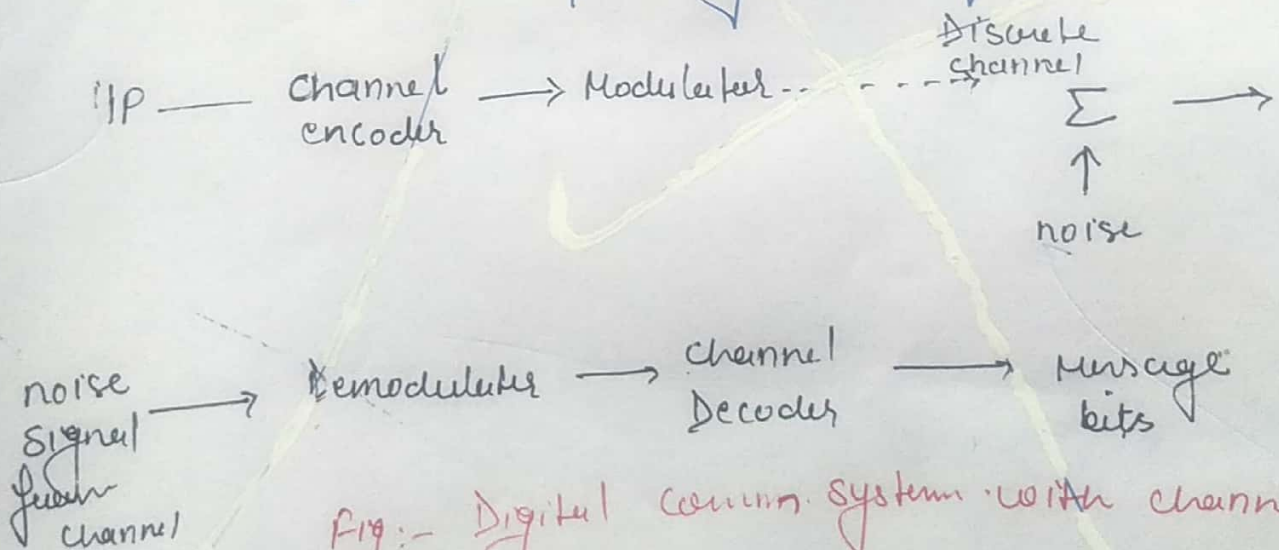 I/P Channel encoder Modulator Discrete channel
Σ
noise
noise signal from channel Demodulator Channel Decoder Message bits
Fig:- Digital Comm. system with chann